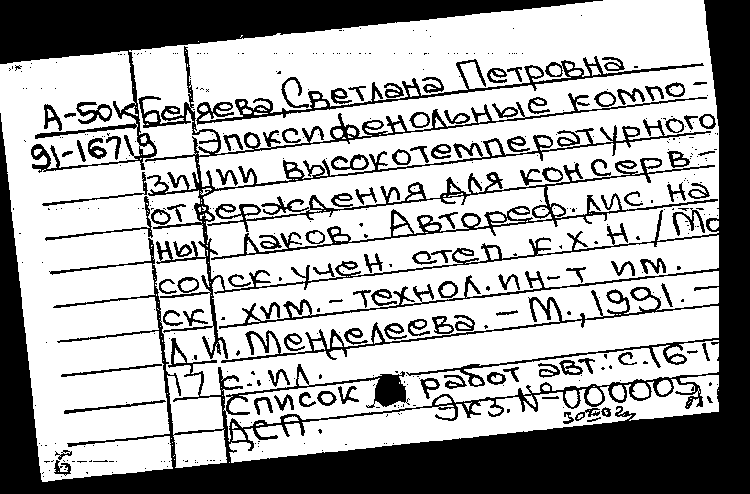 А-50к Беляева, Светлана Петровна.
91-16719 Эпоксифенольные компо-
зиции высокотемпературного
отверждения для консерв-
ных лаков: Автореф. дис. на
соиск. учен. степ. к.х.н. / Мо
ск. хим.-технол. ин-т им.
Д.И. Менделеева. - М., 1991. -
17 с.: ил.
Список работ авт.: с. 16-17
ДСП. Экз. № 000005
б